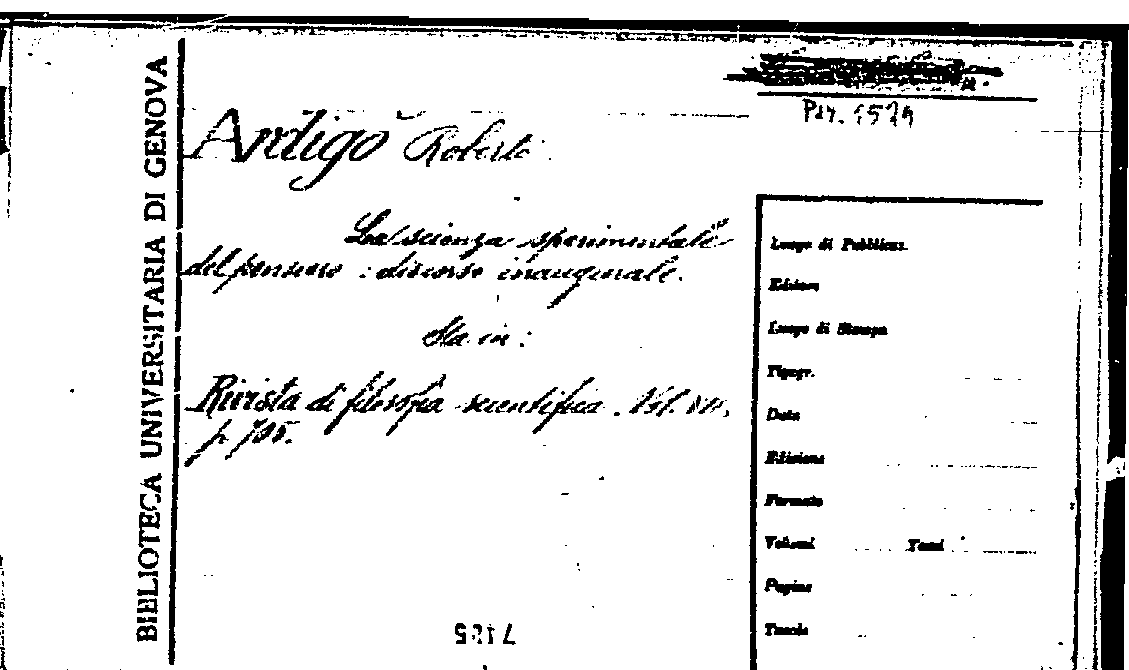 BIBLIOTECA UNIVERSITARIA DI GENOVA
Per. 1579
Ardigò Roberto
La scienza sperimentale
del pensiero : discorso inaugurale.
Sta in :
Rivista di filosofia scientifica. Vol. VII,
p. 705.
Luogo di Pubblicaz.
Editore
Luogo di Stampa
Tipogr.
Data
Edizione
Formato
Volumi Tomi
Pagine
Tavole